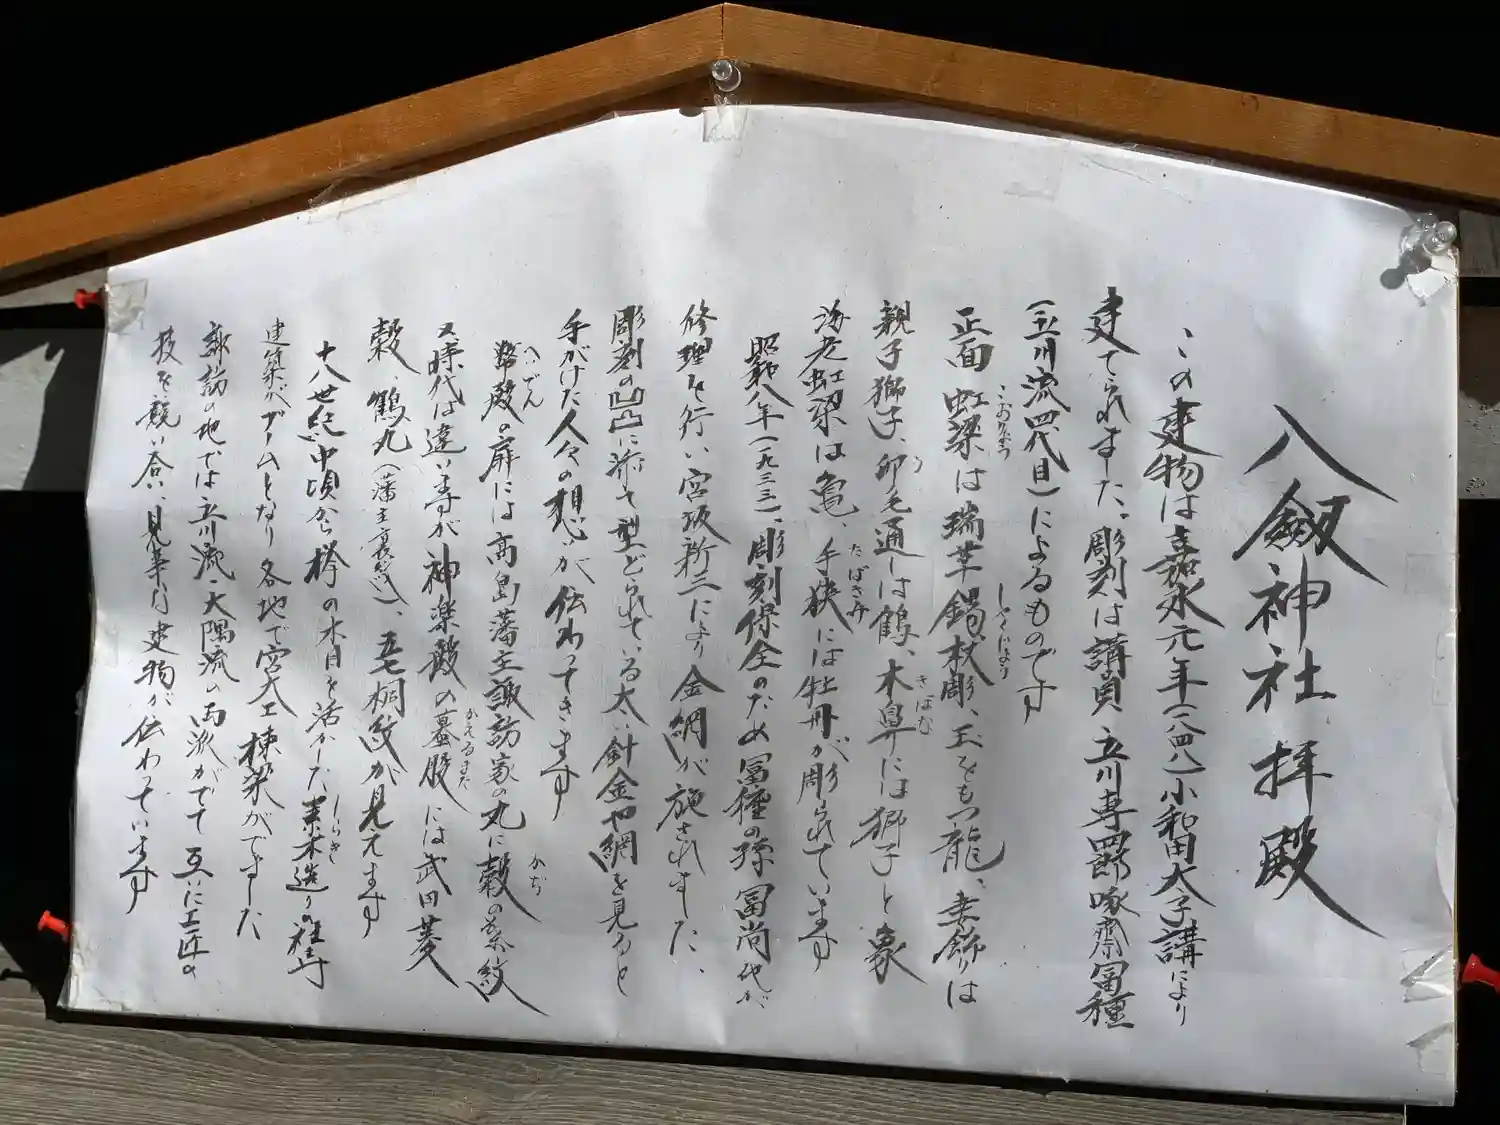 八劔神社 拝殿
この建物は嘉永元年(一八四八)小和田太子講により
建てられました。彫刻は講員 立川専四郎啄斎冨種
(立川流四代目)によるものです
正面 虹梁は瑞草錫杖彫、玉をもつ龍、妻飾りは
親子獅子、卯毛通しは鶴、木鼻には獅子と象
海老虹梁は亀、手狭には牡丹が彫られています
昭和八年(一九三三)、彫刻保全のため冨種の孫 冨尚他が
修理を行い宮坂新三により金網が施されました、
彫刻の凹凸に添って型どられている太い針金や網を見ると
手がけた人々の想いが伝わってきます
幣殿の扉には高島藩主諏訪家の丸に穀の葉紋
又時代は違いますが神楽殿の蟇股には武田菱
穀 鶴丸(藩主裏紋)、五七桐紋が見えます
十八世紀中頃から欅の木目を活かした素木造りの社寺
建築がブームとなり各地で宮大工棟梁がでました
諏訪の地では立川流・大隅流の両派がでて互いに工匠の
技を競い合い、見事な建物が伝わっています